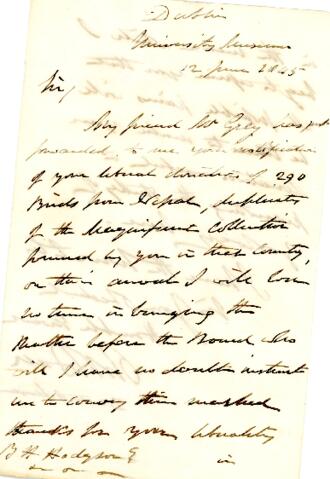 Dublin
University Museum
12 June 1845
Sir,
My friend Mr Gray has just
forwarded to me your notification
of your liberal donation of 290
Birds from Nepal, duplicates
of the Magnificent Collection
formed by you in that Country,
on their arrival I will lose
no time in bringing the
matter before the Board who
will I have no doubt instruct
me to convey their marked
thanks for your liberality
B H Hodgson
in